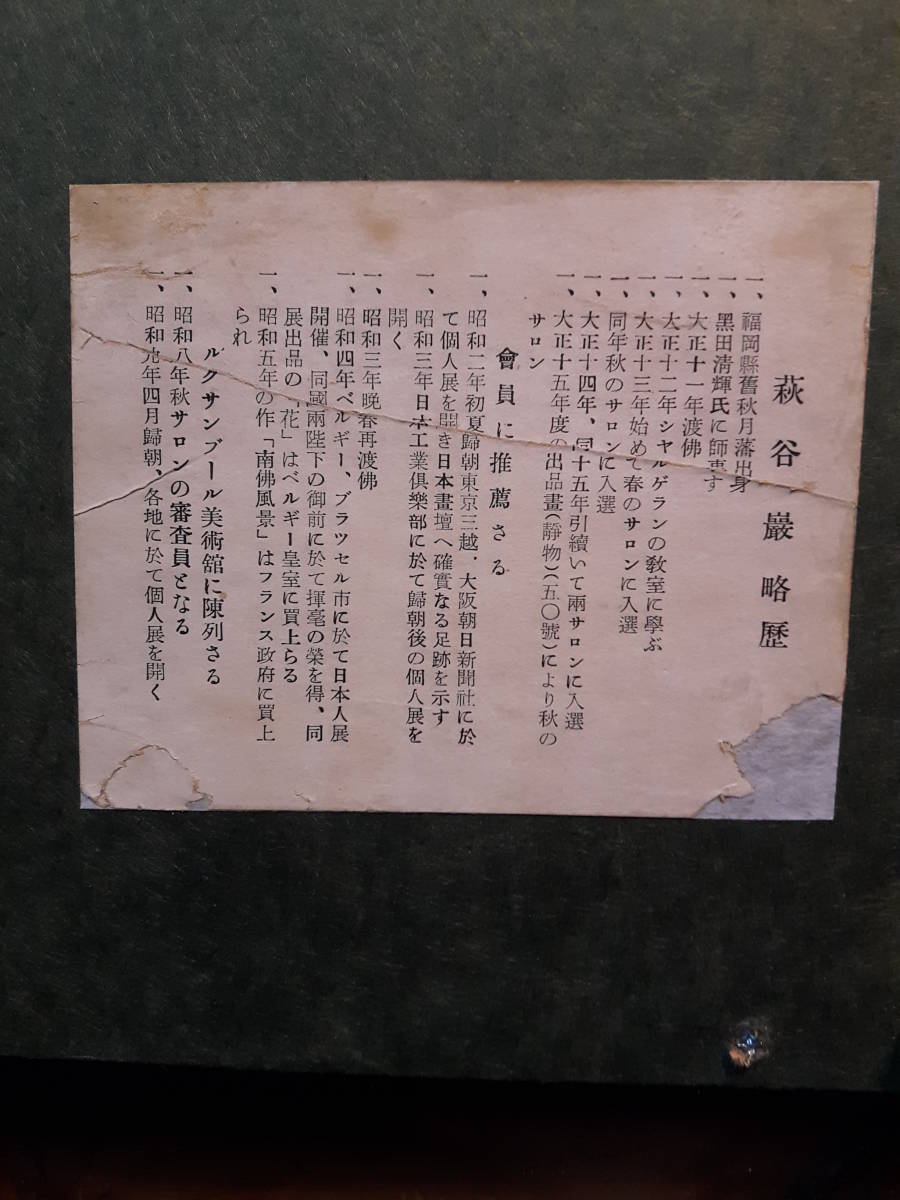 萩谷巖略歴
一、福岡縣舊秋月藩出身
一、黑田淸輝氏に師事す
一、大正十一年渡佛
一、大正十二年シヤルゲランの敎室に學ぶ
一、大正十三年始めて春のサロンに入選
一、同年秋のサロンに入選
一、大正十四年、同十五年引續いて兩サロンに入選
一、大正十五年度の出品畫(靜物)(五〇號)により秋の
サロン
會員に推薦さる
一、昭和二年初夏歸朝東京三越、大阪朝日新聞社に於
て個人展を開き日本畫壇へ確實なる足跡を示す
一、昭和三年日本工業俱樂部に於て歸朝後の個人展を
開く
一、昭和三年晩春再渡佛
一、昭和四年ベルギー、ブラツセル市に於て日本人展
開催、同國兩陛下の御前に於て揮毫の榮を得、同
展出品の「花」はベルギー皇室に買上らる
一、昭和五年の作「南佛風景」はフランス政府に買上
られ
ルクサンブール美術舘に陳列さる
一、昭和八年秋サロンの審査員となる
一、昭和九年四月歸朝、各地に於て個人展を開く